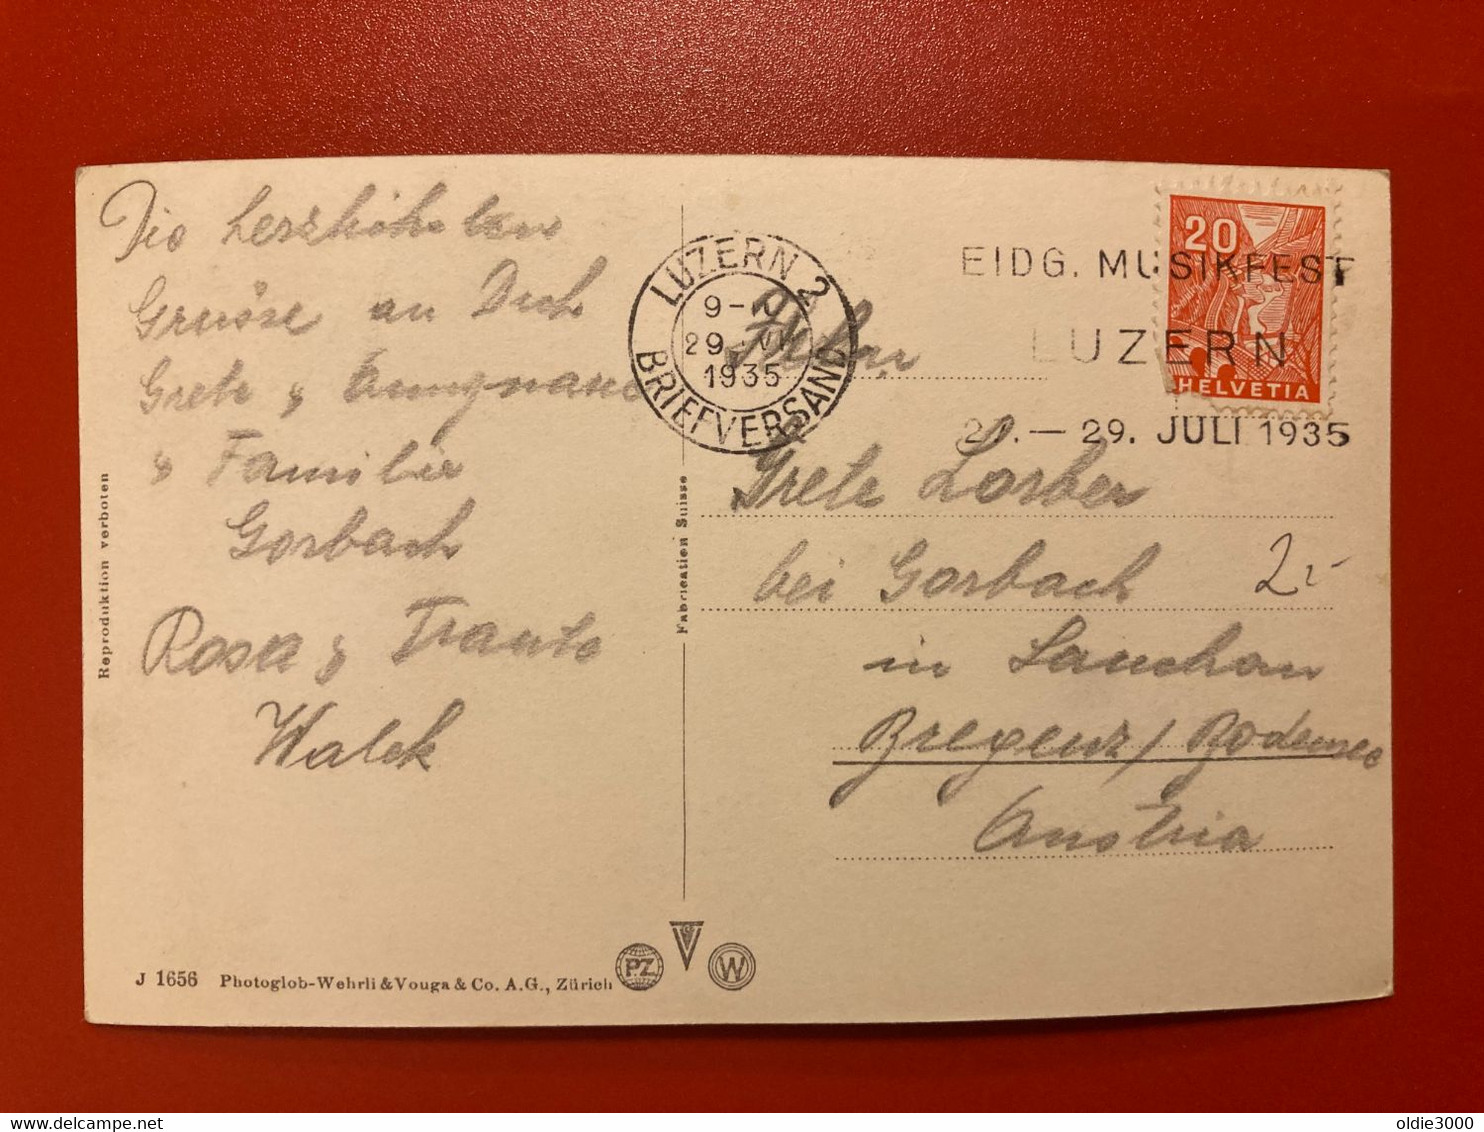 Die herzlichsten
Grüsse an Dich
Grete &
& Familie
Gorbach
Rosa & Traute
Walek
Reproduktion verboten
Fabrication Suisse
LUZERN 2
9-10
29.VII.
1935
BRIEFVERSAND
EIDG. MUSIKFEST
LUZERN
29. JULI 1935
20
HELVETIA
Grete Lorber
bei Gorbach
in Lauchau
Bregenz / Bodensee
Austria
2.-
J 1656 Photoglob-Wehrli & Vouga & Co. A.G., Zürich
P.Z.
V
W
delcampe.net
oldie3000